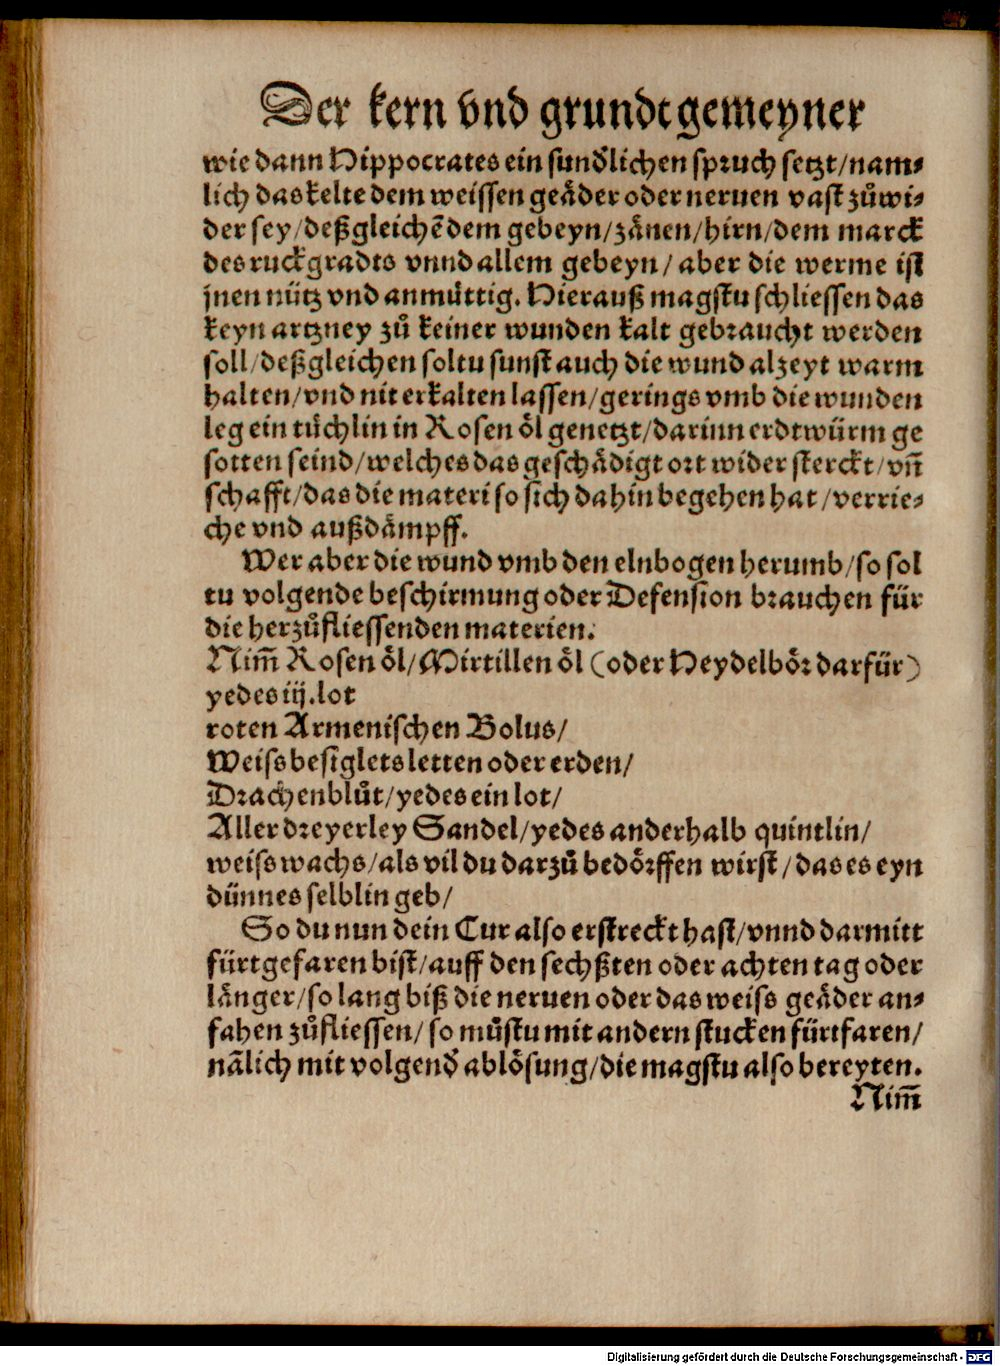 Der kern vnd grundt gemeyner
wie dann Hippocrates ein sundꝛlichen spꝛuch setzt/nam⸗
lich das kelte dem weissen geaͤder oder neruen vast zuͦwi⸗
der sey/deßgleichẽ dem gebeyn/zaͤnen/hirn/dem marck
des ruckgradts vnnd allem gebeyn/ aber die werme ist
jnen nuͤtz vnd anmuͤttig. Hierauß magstu schliessen das
keyn artzney zuͦ keiner wunden kalt gebꝛaucht werden
soll/deßgleichen soltu sunst auch die wund alzeyt warm
halten/vnd nit erkalten lassen/gerings vmb die wunden
leg ein tuͤchlin in Rosen oͤl genetzt/darinn erdtwuͤrm ge
sotten seind/welches das geschaͤdigt oꝛt wider sterckt/vñ
schafft/das die materi so sich dahin begehen hat/verrie⸗
che vnd außdaͤmpff.
Wer aber die wund vmb den elnbogen herumb/so sol
tu volgende beschirmung oder Defension bꝛauchen fuͤr
die herzuͦfliessenden materien.
Nim̃ Rosen oͤl/Mirtillen oͤl (oder Heydelboͤꝛ darfuͤr)
yedes iij.lot
roten Armenischen Bolus/
Weiss besiglets letten oder erden/
Dꝛachenbluͦt/yedes ein lot/
Aller dꝛeyerley Sandel/yedes anderhalb quintlin/
weiss wachs/als vil du darzuͦ bedoͤꝛffen wirst/das es eyn
duͤnnes selblin geb/
So du nun dein Cur also erstreckt hast/vnnd darmitt
fuͤrtgefaren bist/auff den sechßten oder achten tag oder
laͤnger/so lang biß die neruen oder das weiss geaͤder an⸗
fahen zuͦfliessen/ so muͦstu mit andern stucken fuͤrtfaren/
nãlich mit volgendꝛ abloͤsung/die magstu also bereyten.
Nim̃
Digitalisierung gefördert durch die Deutsche Forschungsgemeinschaft - DFG